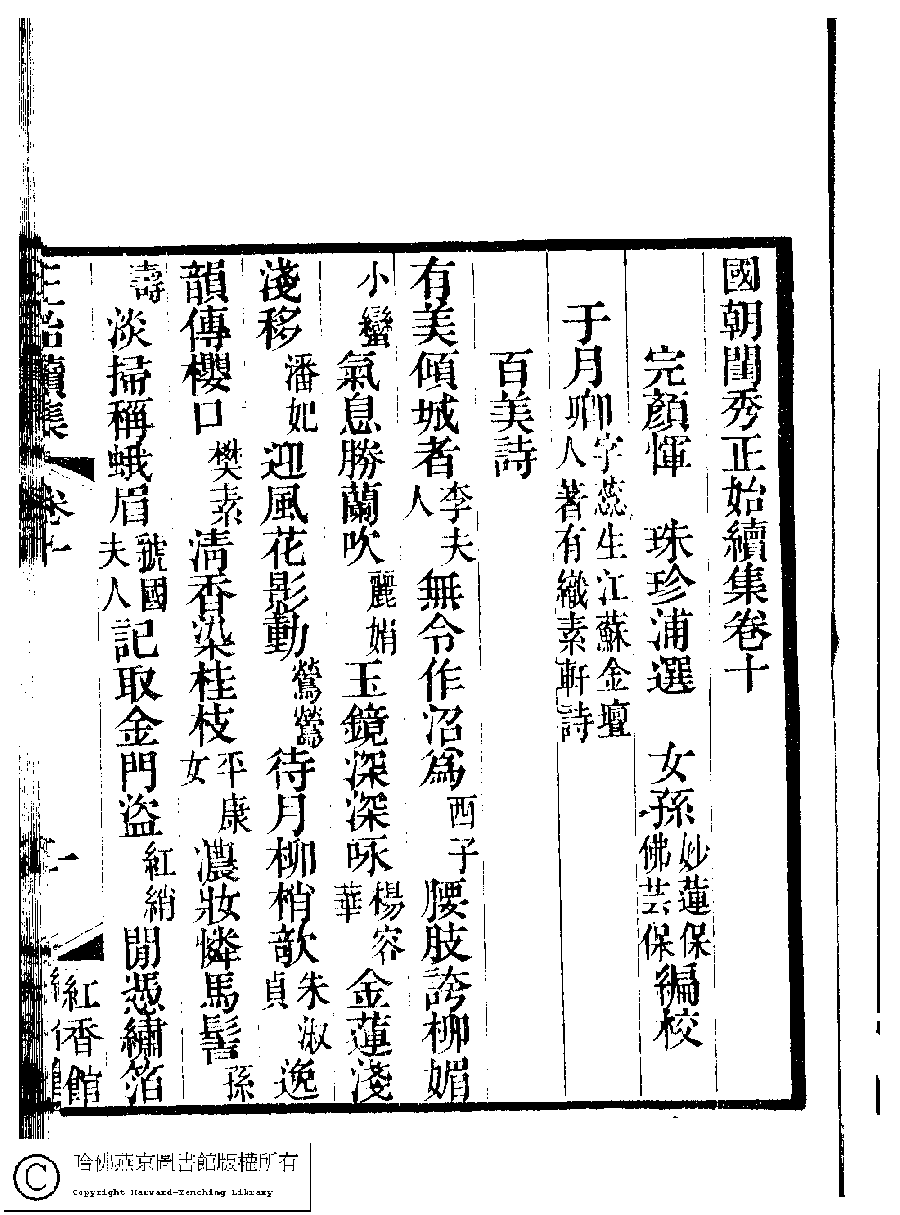 國朝閨秀正始續集卷十
完顏惲 珠珍浦選 女孫妙蓮保佛芸保編校
于月卿字蕊生江蘇金壇人著有織素軒詩
百美詩
有美傾城者李夫人無令作沼爲西子腰肢誇柳媚
小蠻氣息勝蘭吹麗娟玉鏡深深咏楊容華金蓮淺
淺移潘妃迎風花影動鶯鶯待月柳梢欹朱淑貞逸
韻傳櫻口樊素清香染桂枝平康女濃妝憐馬髻孫
壽淡掃稱蛾眉虢國夫人記取金門盜紅綃閒憑繡箔
正始續集 卷十 一 紅香館
哈佛燕京圖書館版權所有
Copyright Harvard-Yenching Library